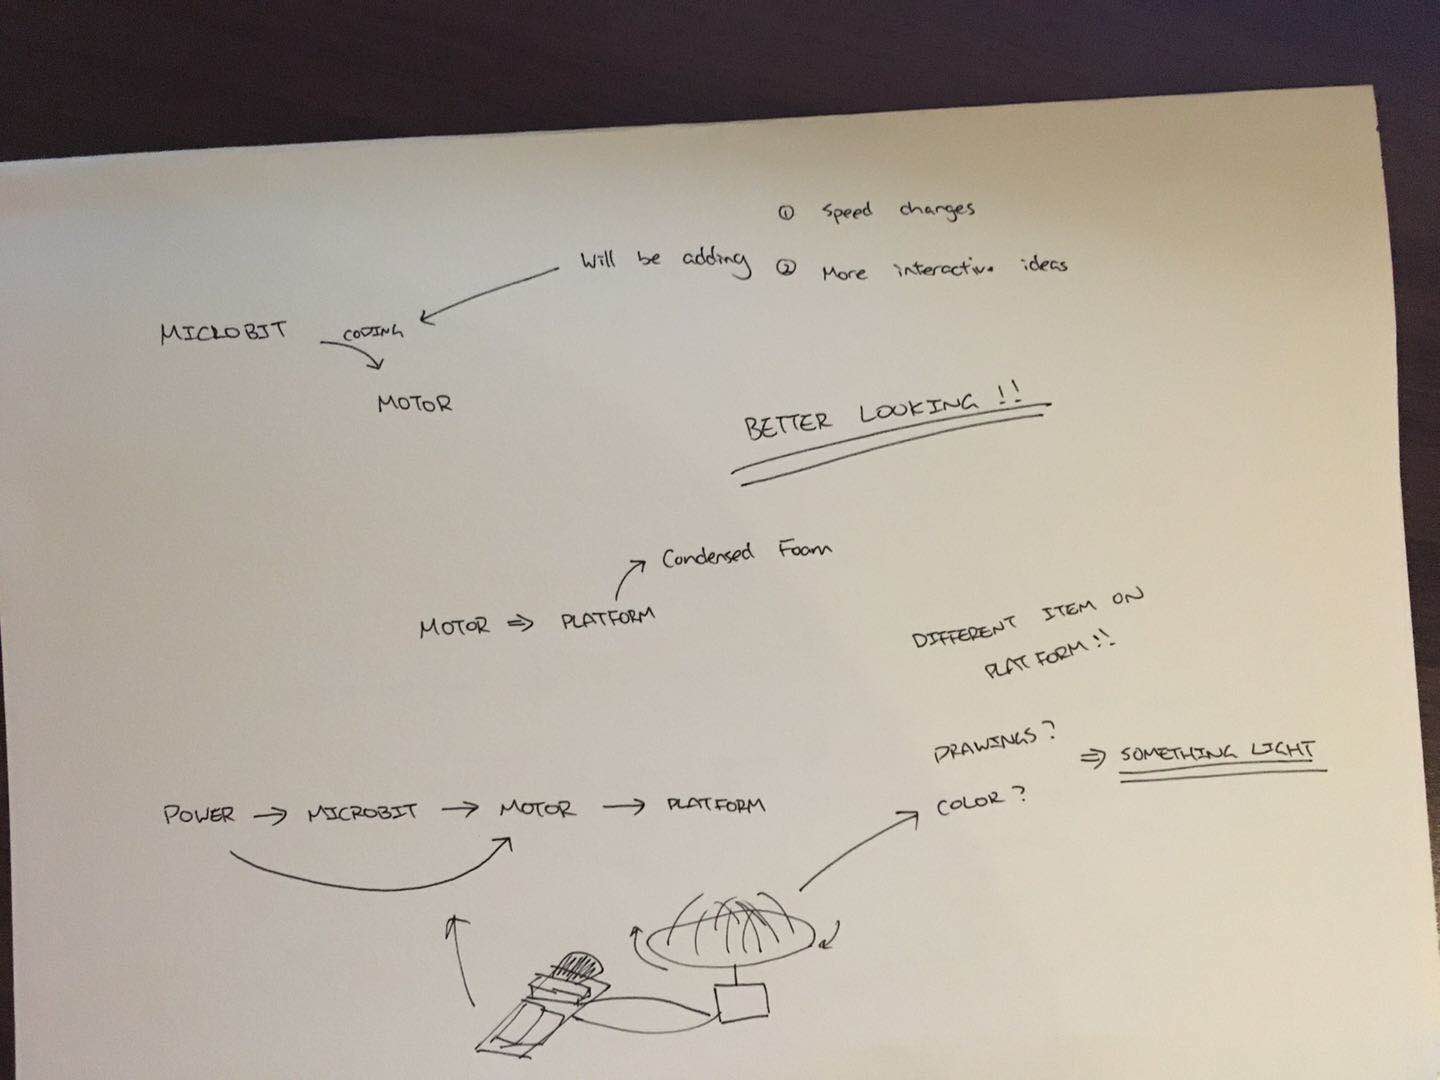 ① Speed changes
Will be adding ② More interactive ideas
MICROBIT CODING
MOTOR
BETTER LOOKING!!
Condensed Foam
MOTOR ⇒ PLATFORM
DIFFERENT ITEM ON
PLATFORM!!
DRAWINGS?
⇒ SOMETHING LIGHT
COLOR?
POWER → MICROBIT → MOTOR → PLATFORM